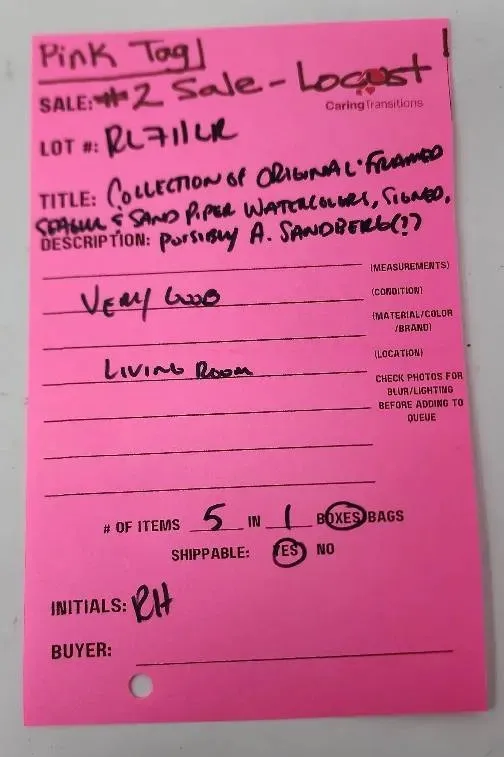 Pink Tag
SALE: #2 Sale - Locust
CaringTransitions
LOT #: RL711LR
TITLE: COLLECTION OF ORIGINAL FRAMED
SEAGULL & SAND PIPER WATERCOLORS, SIGNED,
DESCRIPTION: POSSIBLY A. SANDBERG(?)
(MEASUREMENTS)
VERY GOOD (CONDITION)
(MATERIAL/COLOR
/BRAND)
LIVING ROOM (LOCATION)
CHECK PHOTOS FOR
BLUR/LIGHTING
BEFORE ADDING TO
QUEUE
# OF ITEMS 5 IN 1 BOXES/BAGS
SHIPPABLE: YES NO
INITIALS: RH
BUYER: